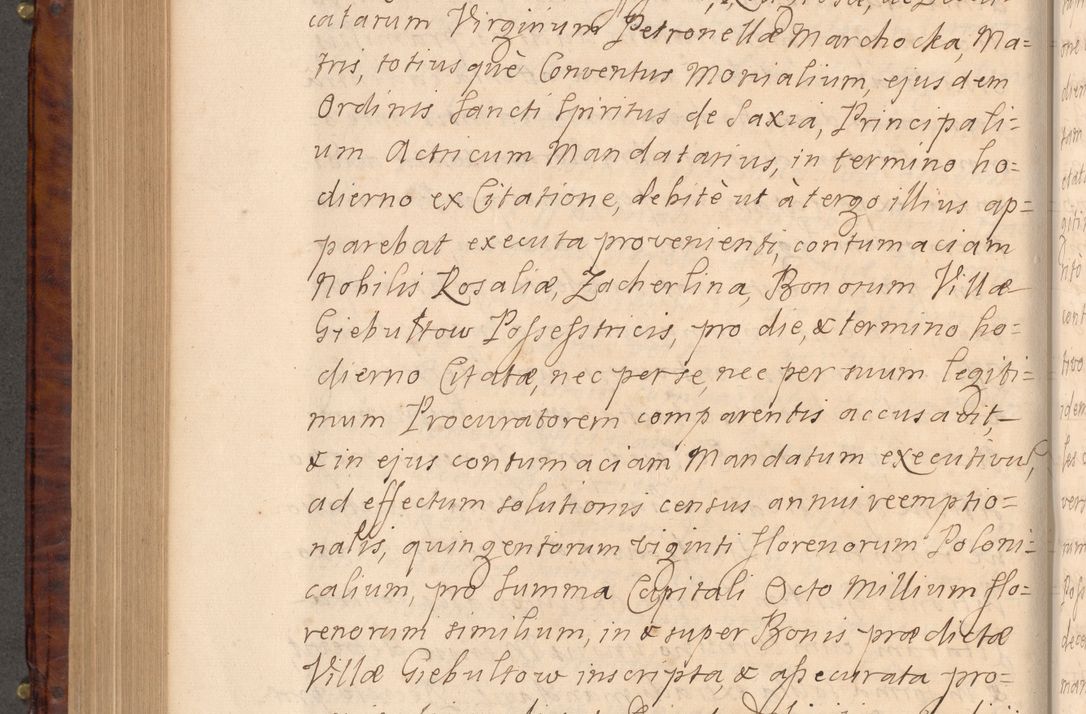 catarum Virginum Petronellæ Marchocka, Ma=
tris, totiusquè Conventus Monialium, ejusdem
Ordinis Sancti Spiritus de Saxia, Principali=
um Actricum Mandatarius, in termino ho=
dierno ex Citatione, debitè ut à tergo illius ap=
parebat executa provenienti, contumaciam
Nobilis Rosaliæ, Zacherlina, Bonorum Villæ
Giebułtow Possesstricis, pro die, & termino ho=
dierno Citatæ, nec per se, nec per suum legiti=
mum Procuratorem comparentis accusavit,
& in ejus contumaciam Mandatum executivū,
ad effectum solutionis census annui reemptio=
nalis, quingentorum viginti florenorum Poloni=
calium, pro Summa Capitali Octo Millium flo=
renorum similium, in & super Bonis prædictæ
Villæ Giebultow inscripta, & assecurata pro=